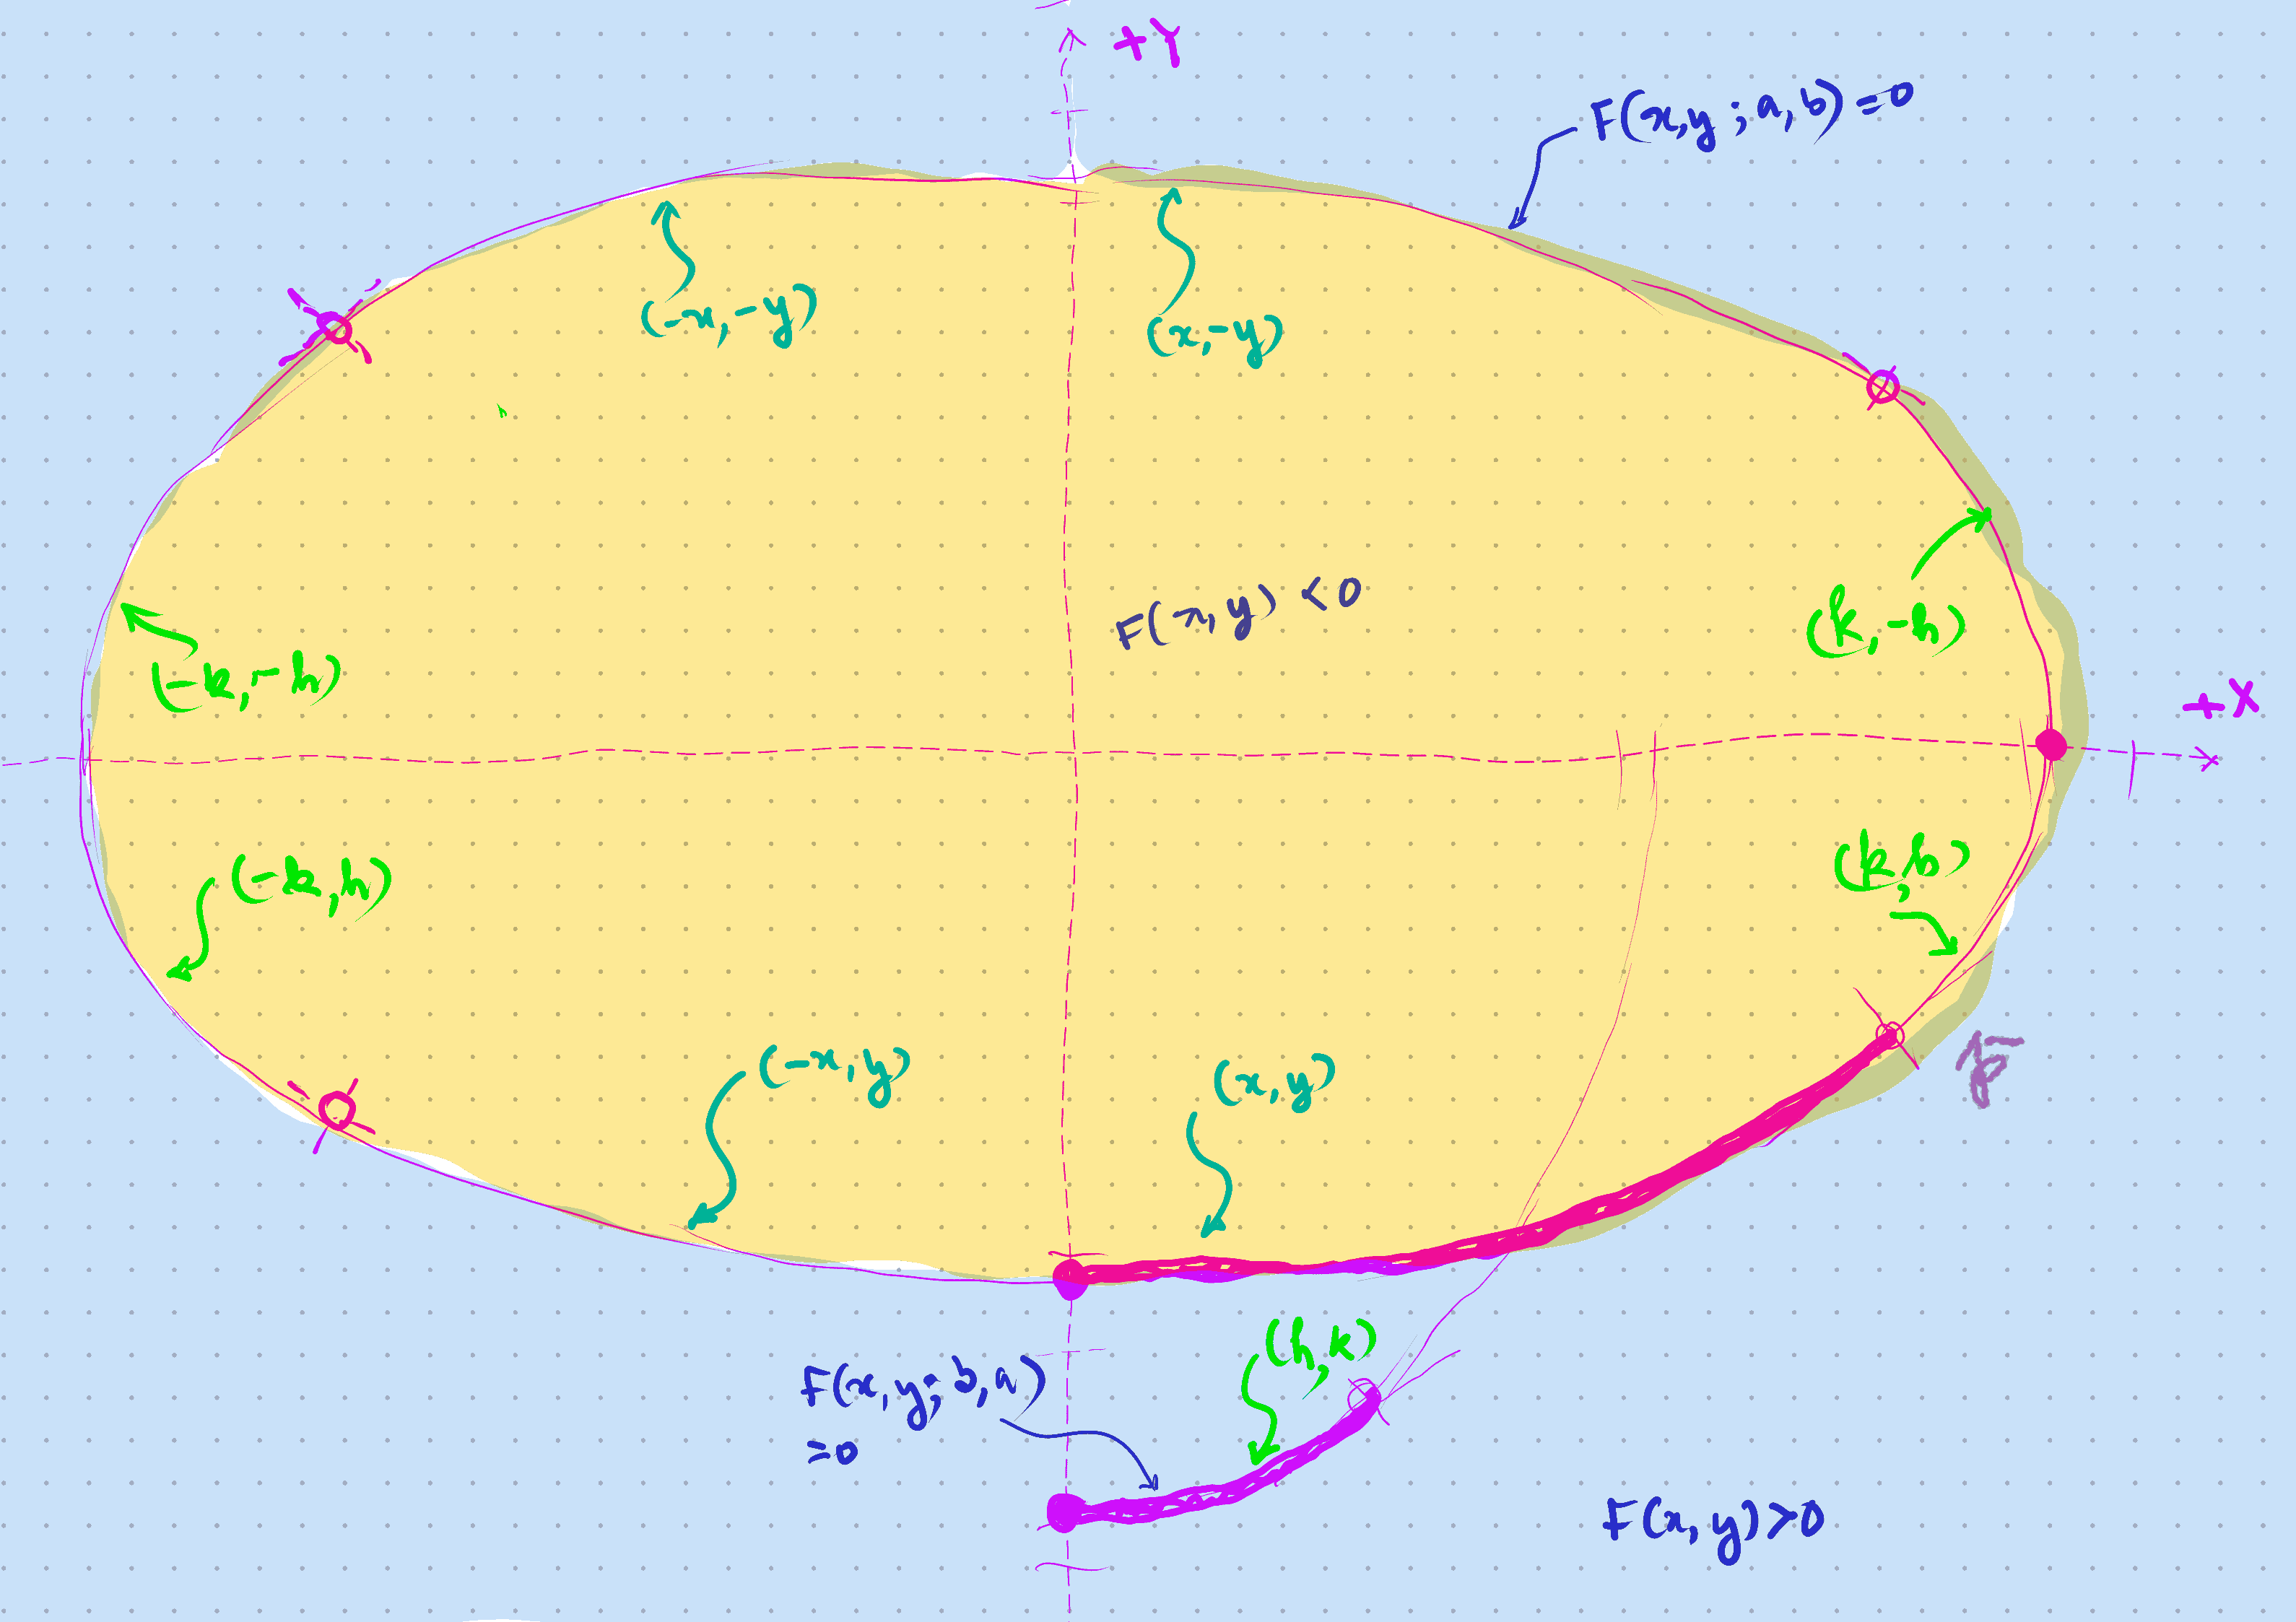 +Y
F(x,y;a,b)=0
(-x,-y)
(x,-y)
F(x,y)<0
(k,-h)
(-k,-h)
+X
(-k,h)
(k,h)
(-x,y)
(x,y)
(h,k)
F(x,y;b,a)
=0
F(x,y)>0